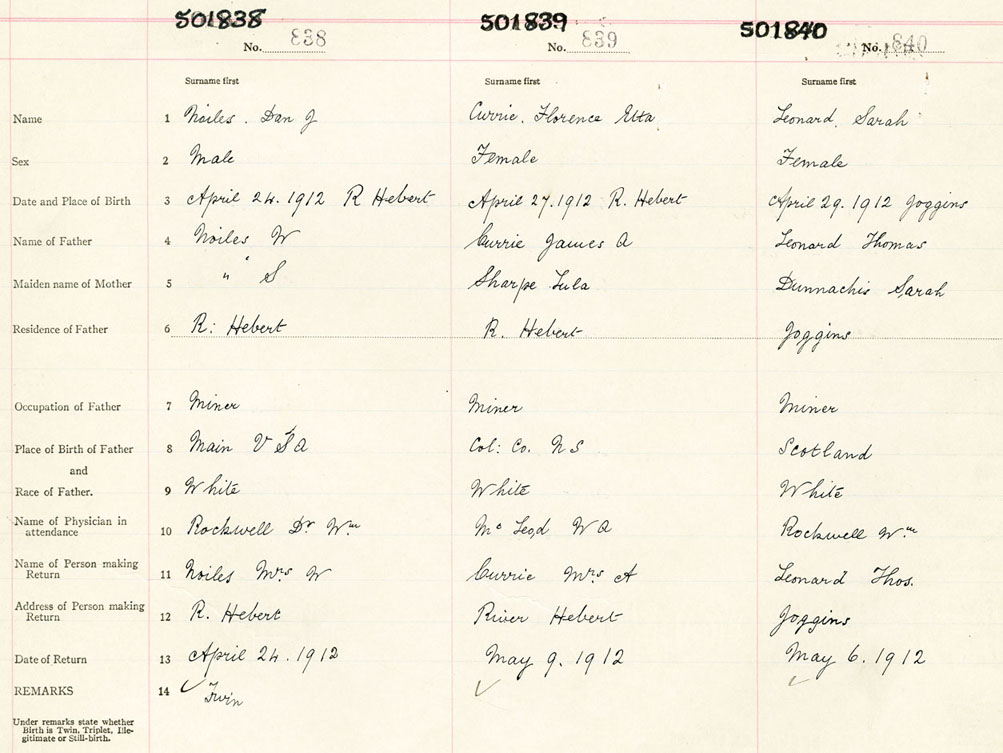 501838 501839 501840
No. 838 No. 839 No. 840
Surname first Surname first Surname first
Name 1 Noiles. Dan J Currie. Florence Etta Leonard. Sarah
Sex 2 Male Female Female
Date and Place of Birth 3 April 24. 1912 R Hebert April 27. 1912 R. Hebert April 29. 1912 Joggins
Name of Father 4 Noiles W Currie James A Leonard Thomas
Maiden name of Mother 5 " " S Sharpe Lula Dunnachie Sarah
Residence of Father 6 R: Hebert R. Hebert Joggins
Occupation of Father 7 Miner Miner Miner
Place of Birth of Father 8 Main U S A Col: Co. N S Scotland
and
Race of Father. 9 White White White
Name of Physician in
attendance 10 Rockwell Dr Wm Mc Leod W A Rockwell Wm
Name of Person making
Return 11 Noiles Mrs W Currie Mrs A Leonard Thos.
Address of Person making
Return 12 R. Hebert River Hebert Joggins
Date of Return 13 April 24. 1912 May 9. 1912 May 6. 1912
REMARKS 14 ✓ Twin ✓ ✓
Under remarks state whether
Birth is Twin, Triplet, Ille-
gitimate or Still-birth.